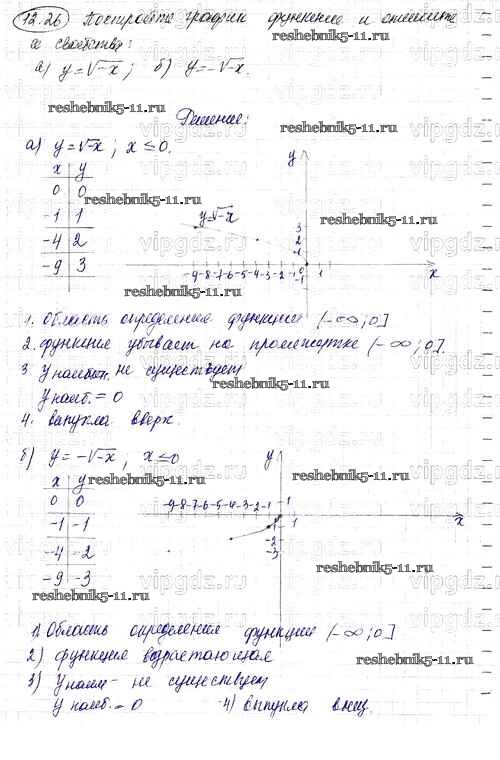 13.26 Постройте график функции и опишите
ее свойства:
а) y=√-x; б) y=-√-x.
reshebnik5-11.ru
Решение:
reshebnik5-11.ru
а) y=√-x; x≤0.
x y
0 0
reshebnik5-11.ru
-1 1
-4 2
-9 3
y
y=√-x
reshebnik5-11.ru
3
2
1
-9-8-7-6-5-4-3-2-1 0 1
-1
x
reshebnik5-11.ru
1. Область определения функции (-∞;0]
2. функция убывает на промежутке (-∞;0].
3. y не существует
reshebnik5-11.ru
y наиб. = 0
4. выпукла вверх.
б) y=-√-x; x≤0
reshebnik5-11.ru
x y
0 0
-1 -1
-4 -2
-9 -3
y
-9-8-7-6-5-4-3-2-1 1
1
x
-1
-2
-3
reshebnik5-11.ru
reshebnik5-11.ru
reshebnik5-11.ru
1) Область определения функции (-∞;0]
2) функция возрастающая
reshebnik5-11.ru
3) y наим - не существует
y наиб. = 0 4) выпукла вниз.
vipgdz.ru